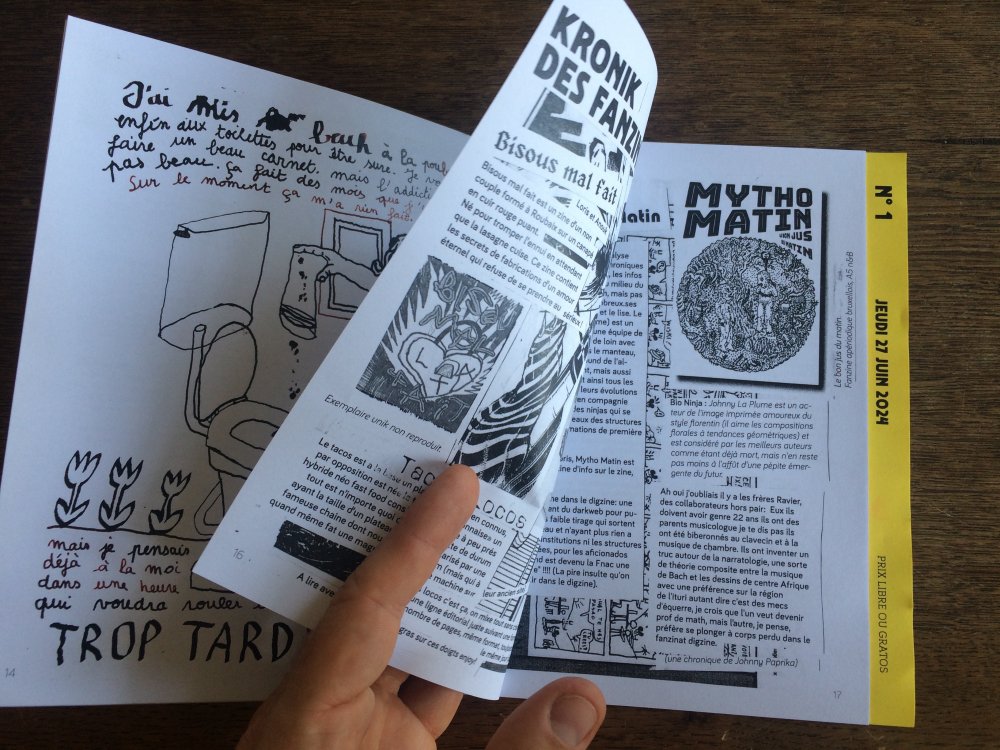 J'ai mis bach à la
enfin aux toilettes pour être sure. je
faire un beau carnet. mais l'addict
pas beau. ça fait des mois que j'
Sur le moment ça m'a rien fait
mais je pensais
déjà à la moi
dans une heure
qui voudra rouler
TROP TARD
14
KRONIK
DES FANZI
Bisous mal fait.
Loris et
Bisous mal fait est un zine d'un non
couple formé à Roubaix sur un canapé
en cuir rouge puant.
Né pour tromper l'ennui en attendant
que la lasagne cuise. Ce zine contient
les secrets de fabrications d'un amour
éternel qui refuse de se prendre au sérieux!
Exemplaire unik non reproduit.
Tac
Locos
Le tacos est à la
par opposition est né
hybride néo fast food cons
tout est n'importe quoi
ayant la taille d'un plateau
fameuse chaine dont nou
quand même fat une mag
en connus,
connaisse un
à peu près
te de durum
arisé par une
m (mais qui à
e machine sur
leur ancien
A lire ave
locos c'est ça, on mixe tout sans
me ligne éditorial juste suivant une
nombre de pages, même format,
gras sur ces doigts enjoy!
16
Matin
MYTHO
MATIN
alyse
hroniques
, les infos
milieu du
h, mais pas
breux.ses
et le lise. Le
me) est un
une équipe de
de loin avec
s le manteau,
ound de l'al-
nt, mais aussi
t ainsi tous les
leurs évolutions
en compagnie
des ninjas qui se
eaux des structures
mations de première
ris, Mytho Matin est
ine d'info sur le zine,
ne dans le digzine: une
ant du darkweb pour pu-
s faible tirage qui sortent
eau et n'ayant plus rien a
institutions ni les structures
ées, pour les aficionados
in est devenu la Fnac une
e" !!!! (La pire insulte qu'on
ir dans le digzine).
Le bon jus du matin.
Fanzine apériodique bruxellois, A5 n&B
Bio Ninja : Johnny La Plume est un ac-
teur de l'image imprimée amoureux du
style florentin (il aime les compositions
florales à tendances géométriques) et
est considéré par les meilleurs auteurs
comme étant déjà mort, mais n'en reste
pas moins à l'affût d'une pépite émer-
gente du futur.
Ah oui j'oubliais il y a les frères Ravier,
des collaborateurs hors pair: Eux ils
doivent avoir genre 22 ans ils ont des
parents musicologue je te dis pas ils
ont été biberonnés au clavecin et à la
musique de chambre. Ils ont inventer un
truc autour de la narratologie, une sorte
de théorie composite entre la musique
de Bach et les dessins de centre Afrique
avec une préférence sur la région
de l'Ituri autant dire c'est des mecs
d'équerre, je crois que l'un veut devenir
prof de math, mais l'autre, je pense,
préfère se plonger à corps perdu dans le
fanzinat digzine.
(une chronique de Johnny Paprika)
17
N° 1
JEUDI 27 JUIN 2024
PRIX LIBRE OU GRATOS